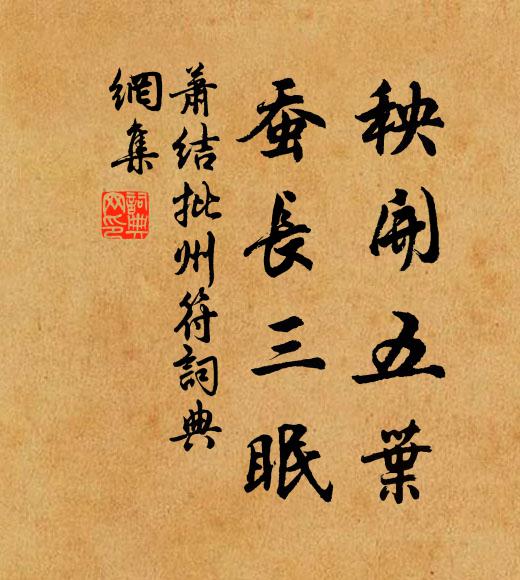 秧開五葉
蚕長三眠
蕭結批州符詞典
網集
詞典
网印